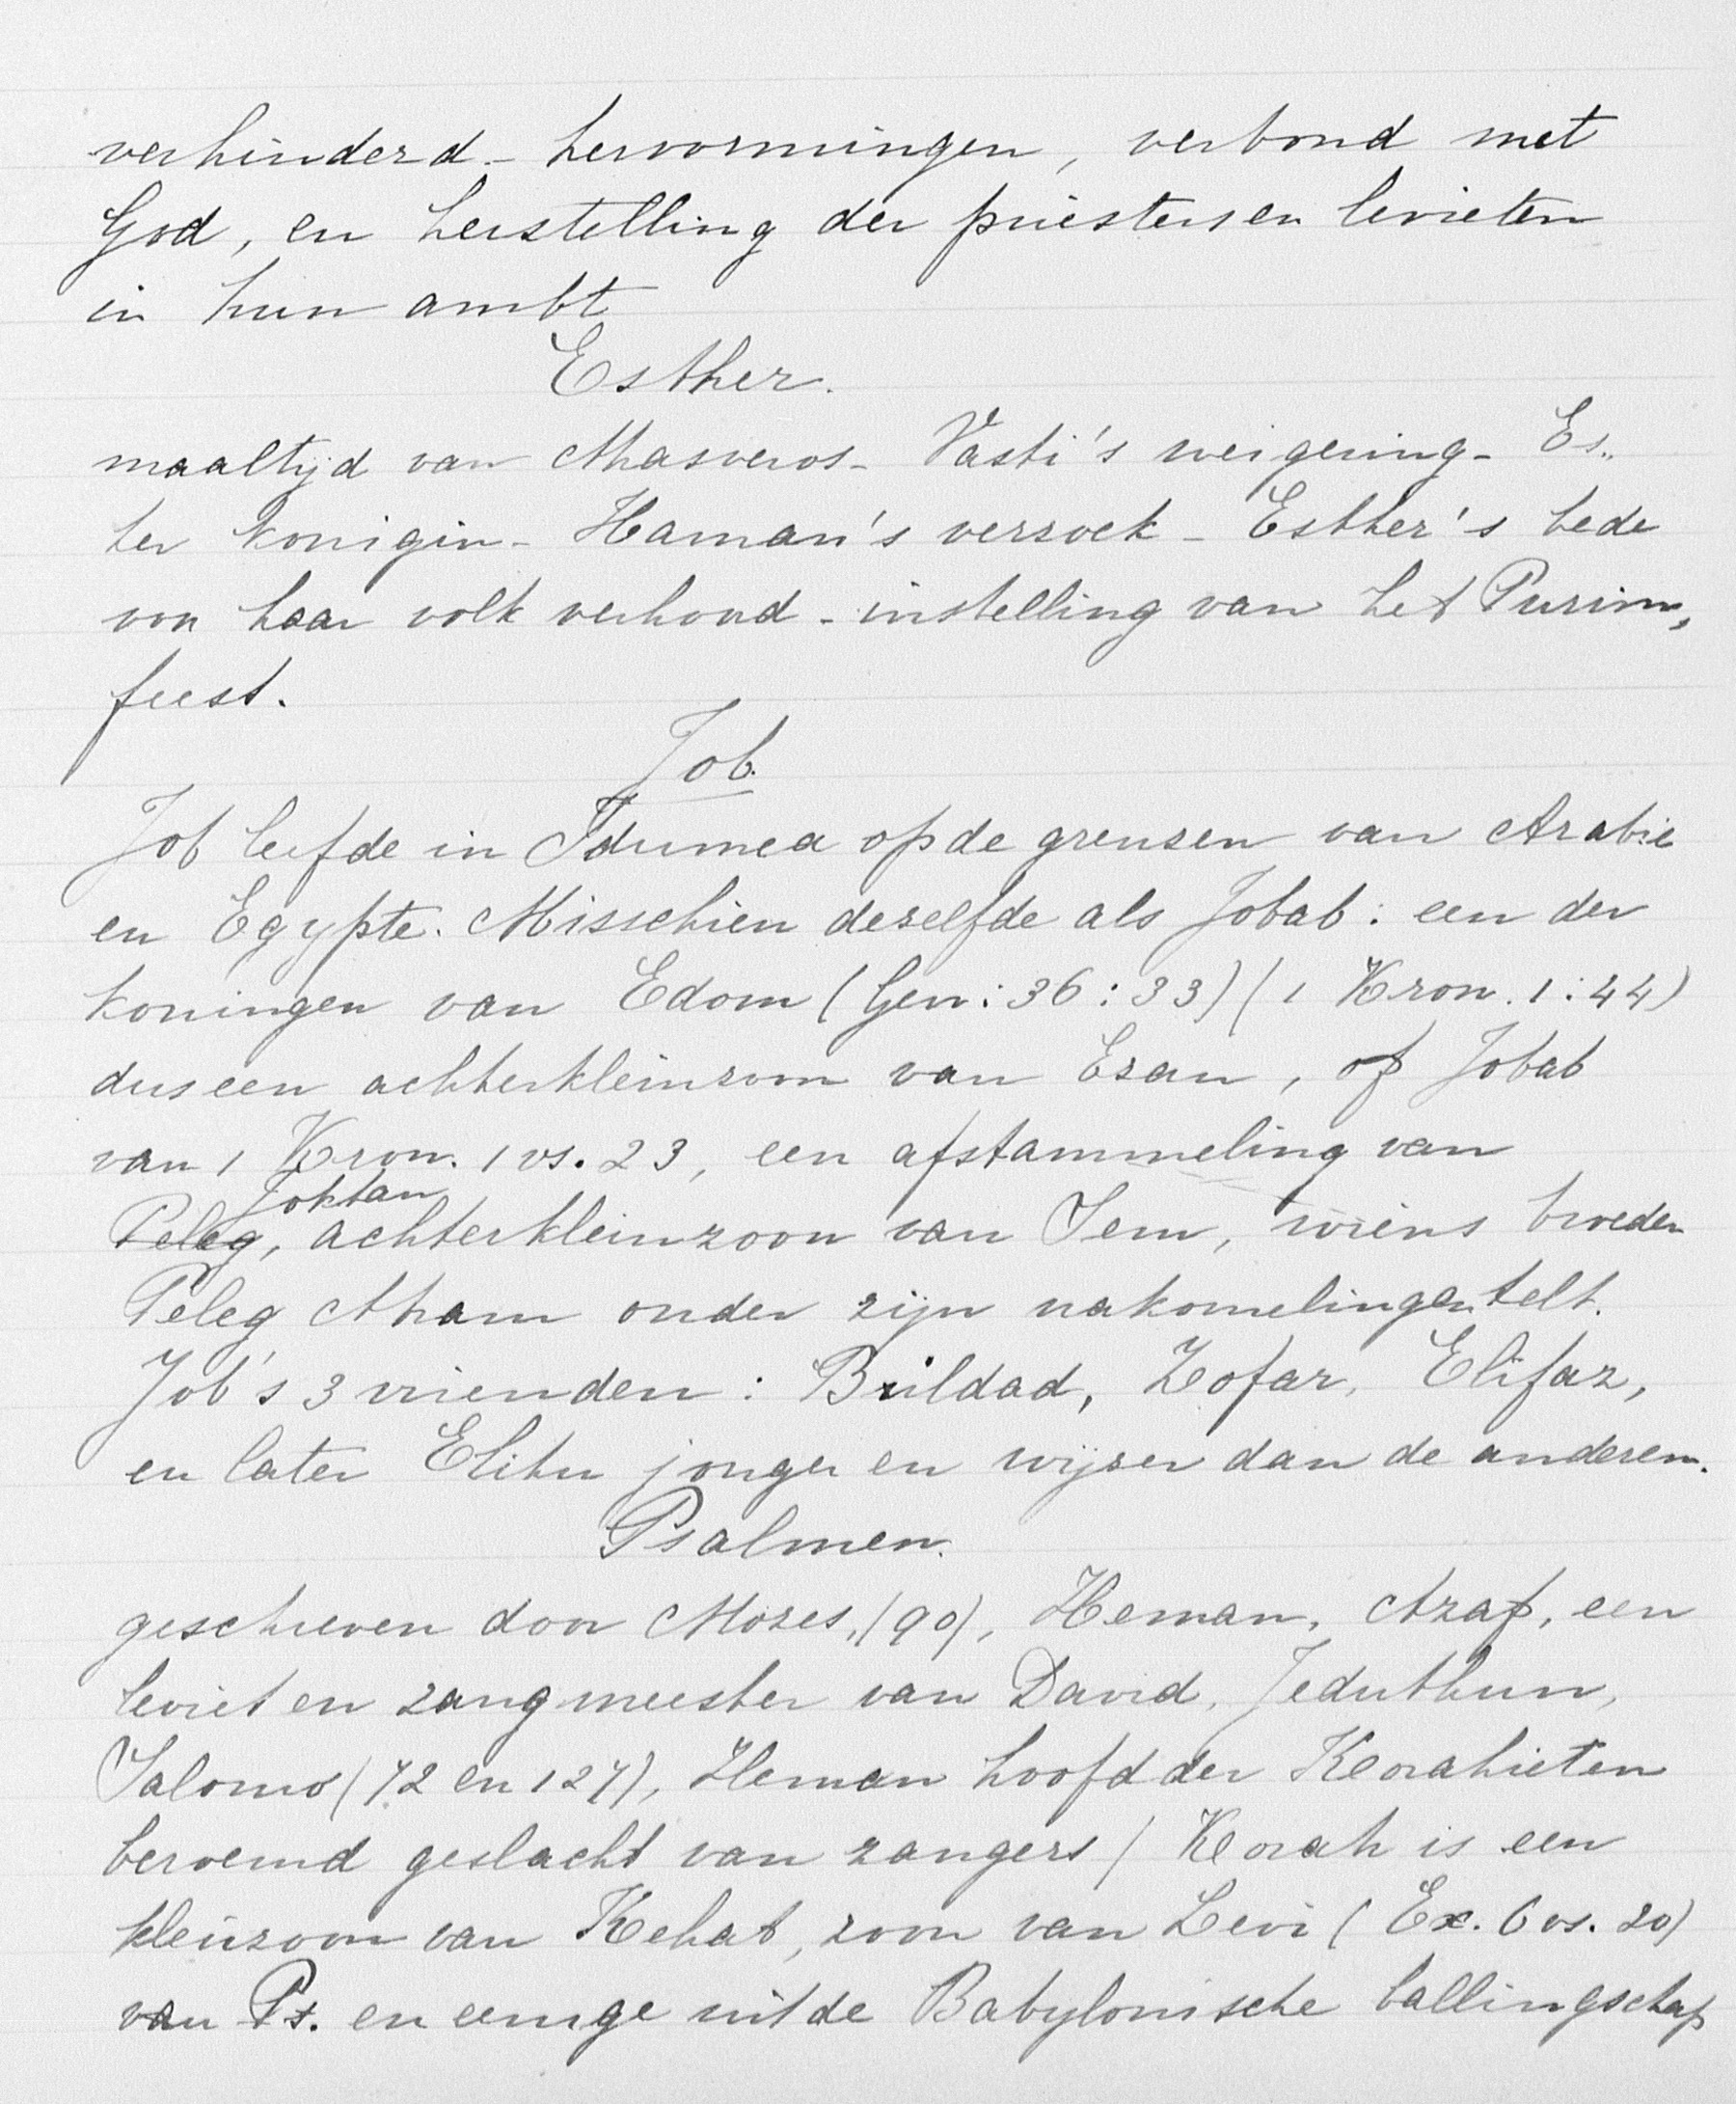 verhinderd - hervormingen, verbond met
God, en herstelling der priesters en levieten
in hun ambt
Esther.
maaltijd van Ahasveros - Vasti's weigering - Es„
ter konigin - Haman's verzoek - Esther's bede
voor haar volk verhoord - instelling van het Purim,
feest.
Job.
Job leefde in Idumea op de grenzen van Arabie
en Egypte. Misschien dezelfde als Jobab: een der
koningen van Edom (Gen: 36:33) (1 Kron. 1:44)
dus een achterkleinzoon van Ezau, of Jobab
van 1 Kron. 1 vs. 23, een afstammeling van
Joktan
Peleg, achterkleinzoon van Sem, wiens broeder
Peleg Abram onder zijn nakomelingen telt.
Job's 3 vrienden: Bildad, Zofar, Elifaz,
en later Elihu jonger en wijzer dan de anderen.
Psalmen.
geschreven door Mozes, (90), Heman, Azaf, een
leviet en zangmeester van David, Jeduthun,
Salomo (72 en 127), Heman hoofd der Korahieten
beroemd geslacht van zangers / Korah is een
kleinzoon van Kehat, zoon van Levi (Ex. 6 vs. 20)
van Ps. en eenige uit de Babylonische ballingschap